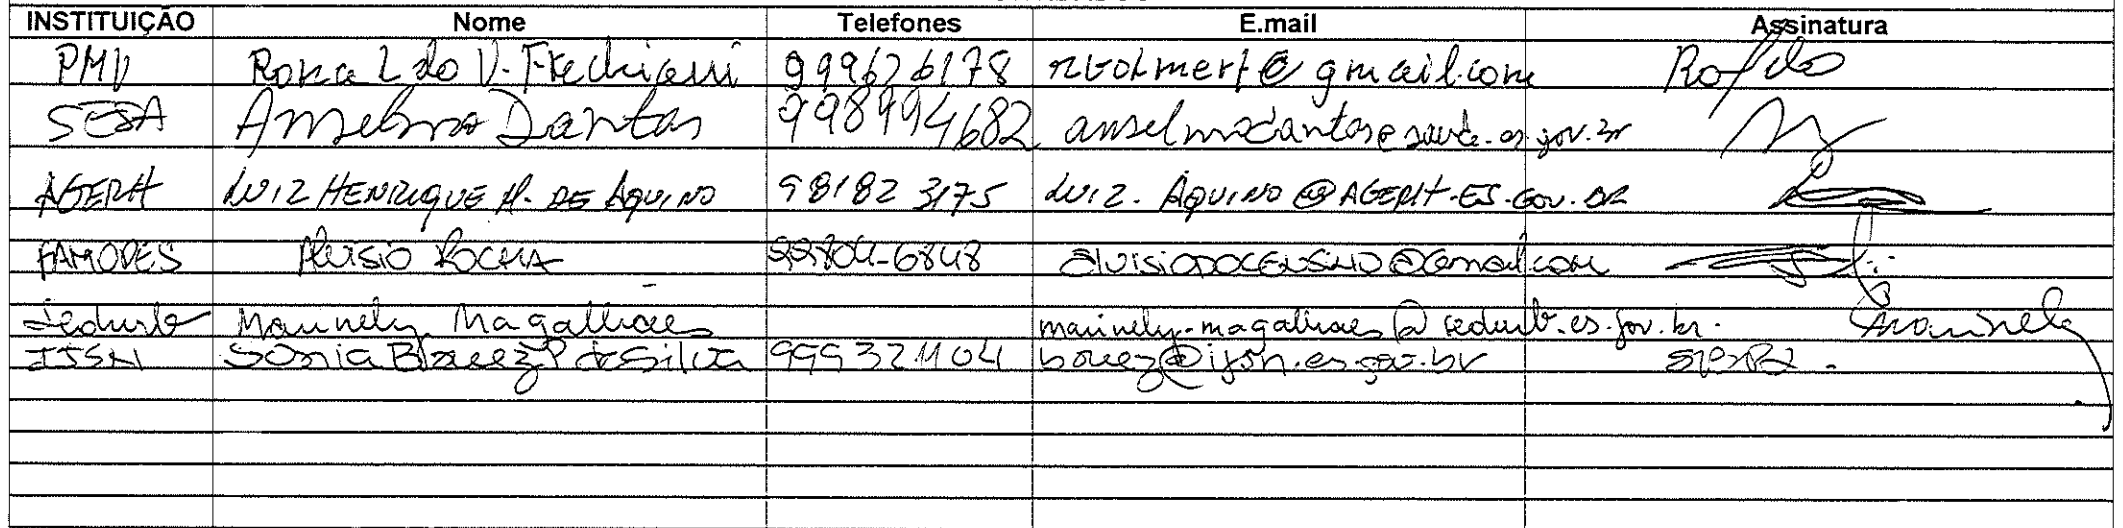 INSTITUIÇÃO Nome Telefones E.mail Assinatura
PMV Ronaldo V. 999626178 @gmail.com
SESA Anselmo Dantas 998994682 anselmodantas@saude.es.gov.br
AGERH LUIZ HENRIQUE M. DE AQUINO 981823175 LUIZ.AQUINO@AGERH.ES.GOV.BR
FAMOPES Aluisio ROCHA 99804-6848
Sedurb Marinely Magalhães marinely.magalhaes@sedurb.es.gov.br. Marinely
IJSN Sônia 999321104 bouez@ijsn.es.gov.br